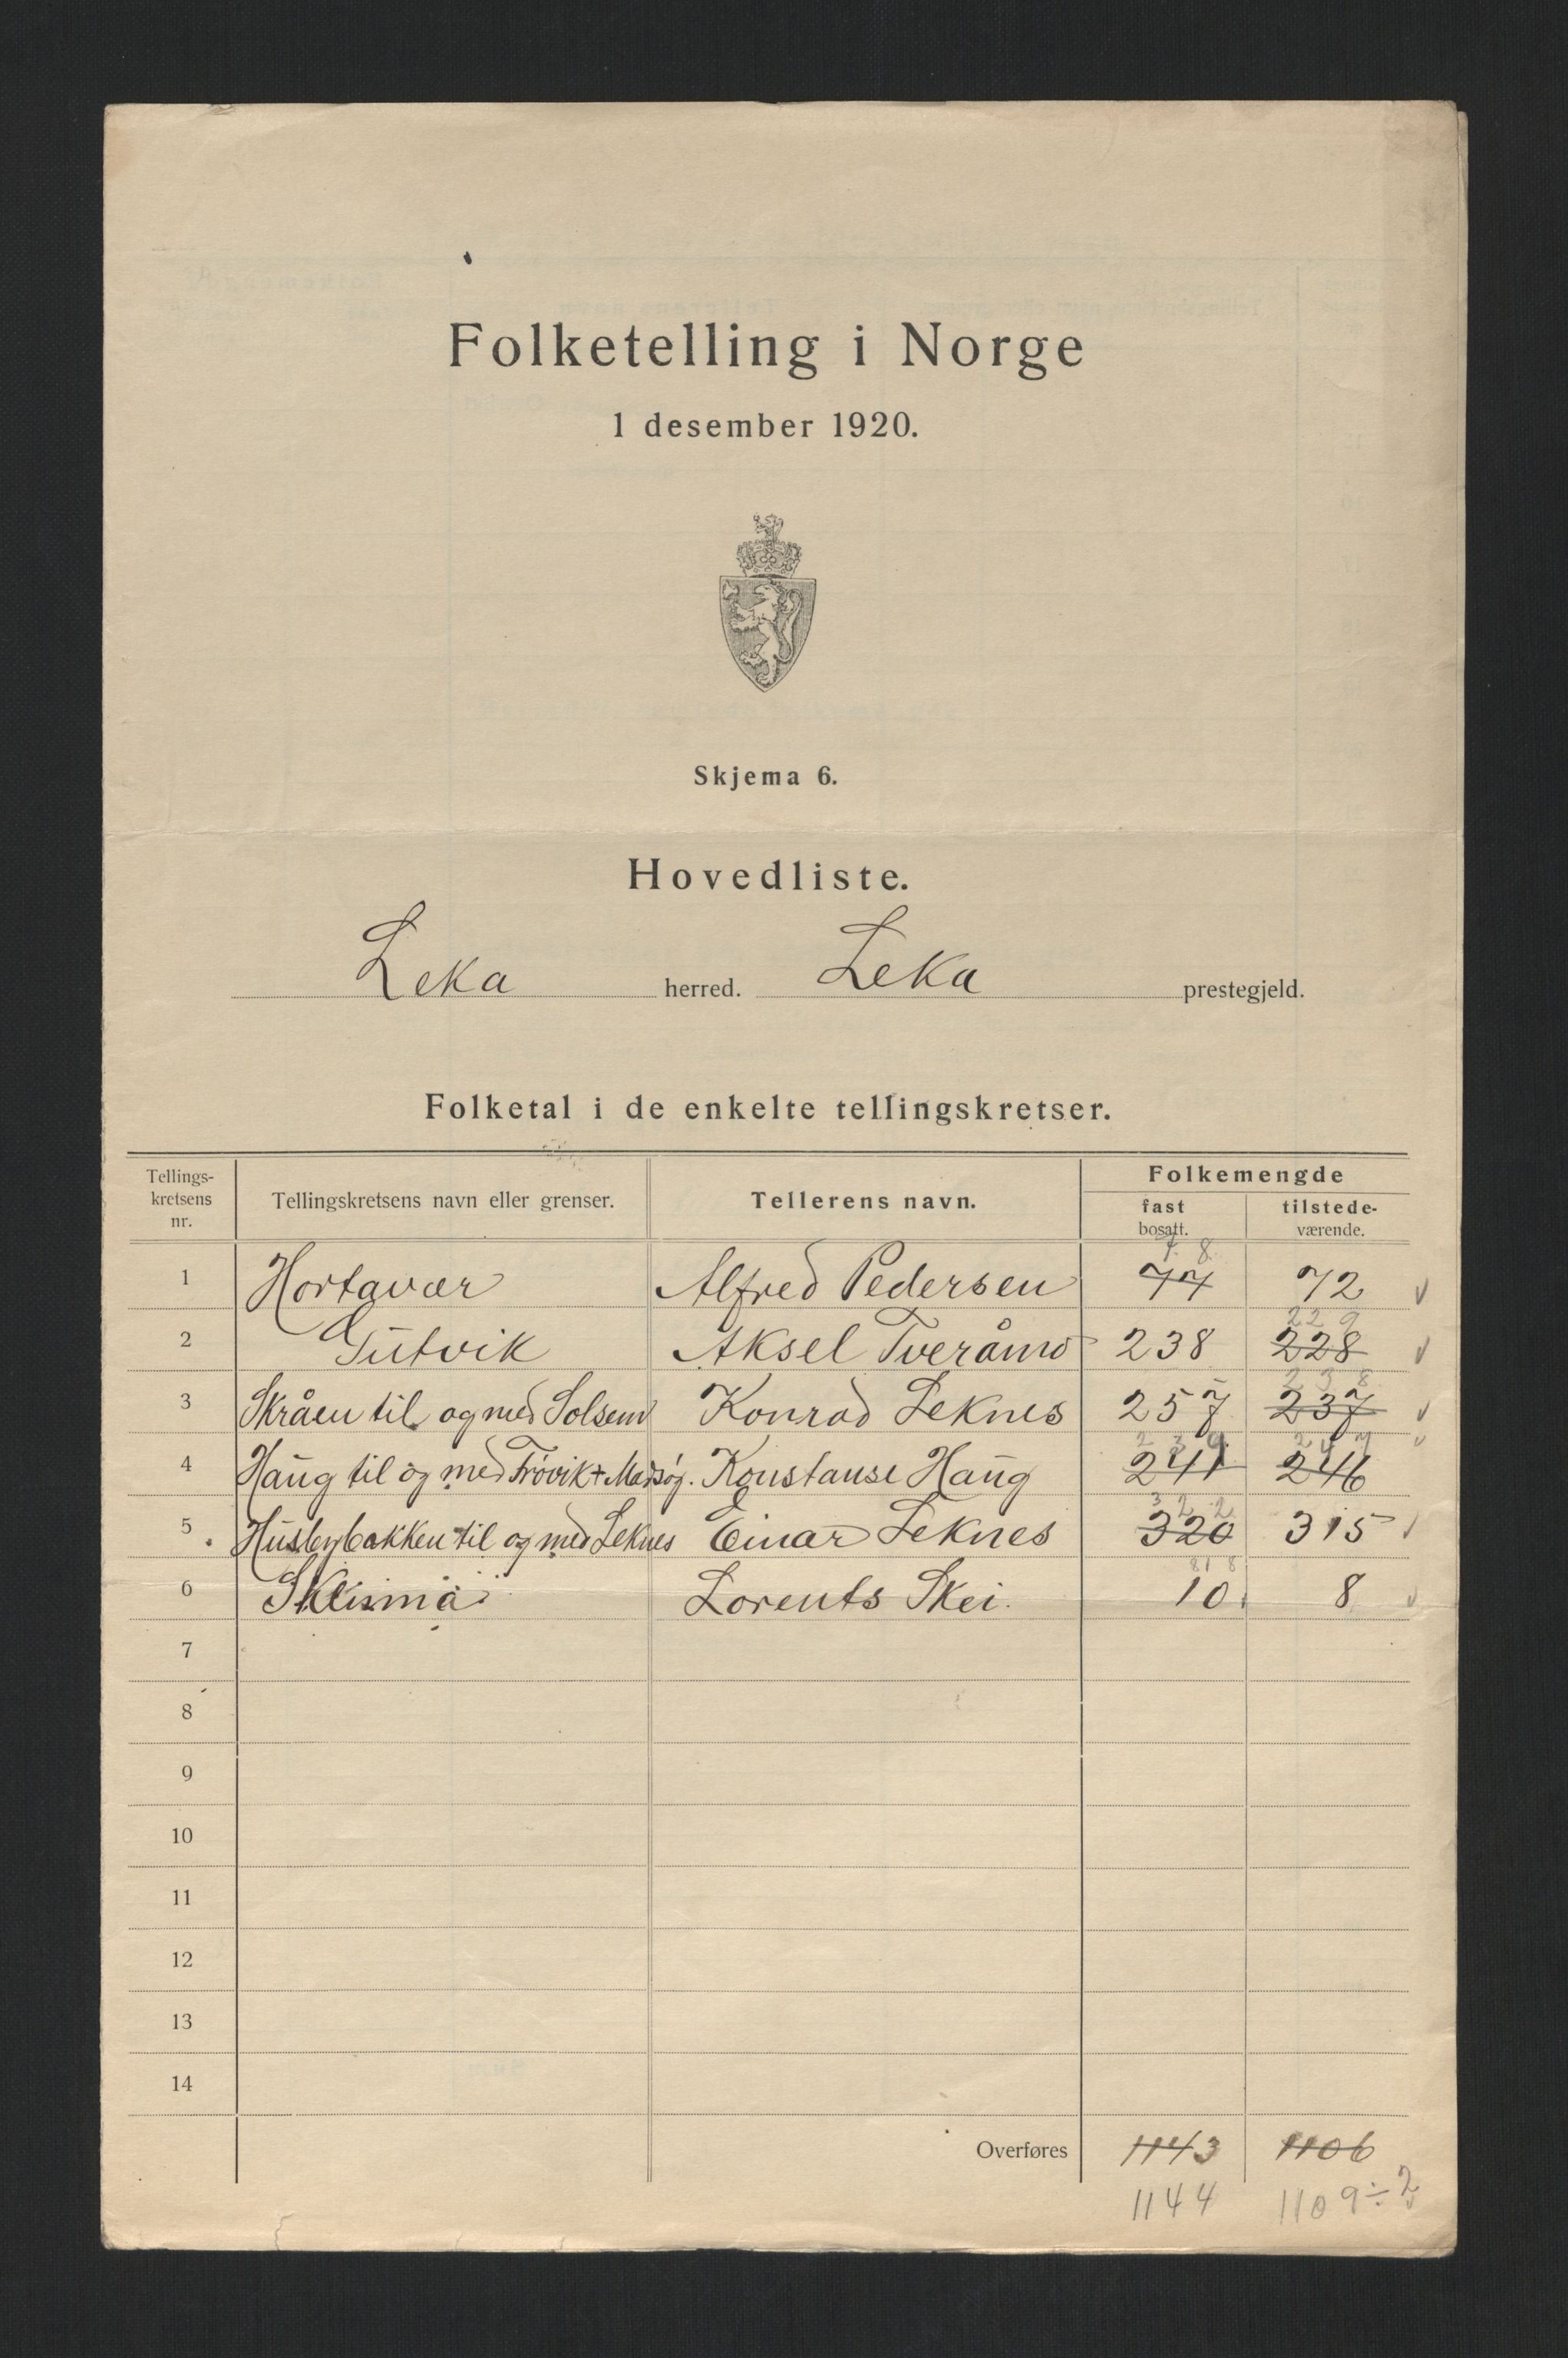 Folketelling i Norge
1 desember 1920.
Skjema 6.
Hovedliste.
Leka herred. Leka prestegjeld.
Folketal i de enkelte tellingskretser.
Tellings-kretsens nr. Tellingskretsens navn eller grenser. Tellerens navn. Folkemengde
fast bosatt. tilstede-værende.
7 8
1 Hortavær Alfred Pedersen 77 72
229
2 Gutvik Aksel Tveråmo 238 228
238
3 Skråen til og med Solsem Konrad Leknes 257 237
239 247
4 Haug til og med Frøvik + Madsøy. Konstanse Haug 241 246
322
5 Husbybakken til og med Leknes Einar Leknes 320 315
6 Lorents Skei. 10 8
7
8
9
10
11
12
13
14
Overføres 1143 1106
1144 1109 ÷ 2